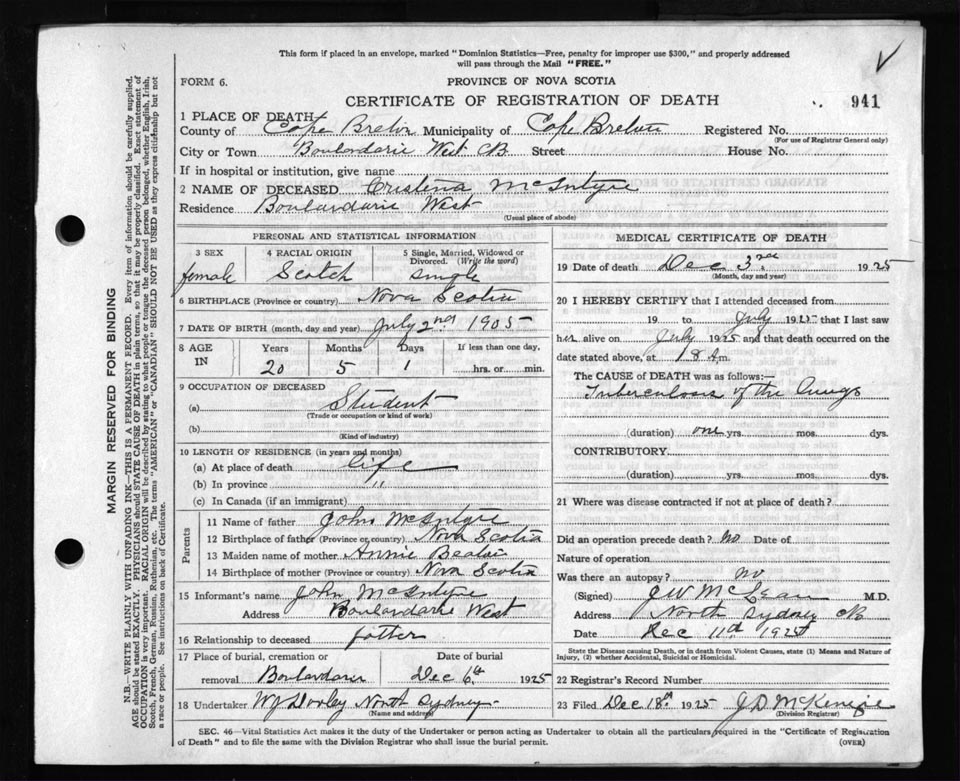 This form if placed in an envelope, marked "Dominion Statistics—Free, penalty for improper use $300," and properly addressed
will pass through the Mail "FREE."
FORM 6.
PROVINCE OF NOVA SCOTIA
CERTIFICATE OF REGISTRATION OF DEATH
941
1 PLACE OF DEATH
County of Cape Breton Municipality of Cape Breton Registered No.
(For use of Registrar General only)
City or Town Boulardarie West CB Street House No.
If in hospital or institution, give name
2 NAME OF DECEASED Cristena McIntyre
Residence Boulardarie West
(Usual place of abode)
PERSONAL AND STATISTICAL INFORMATION
3 SEX female
4 RACIAL ORIGIN Scotch
5 Single, Married, Widowed or Divorced. (Write the word) single
6 BIRTHPLACE (Province or country) Nova Scotia
7 DATE OF BIRTH (month, day and year) July 2nd 1905
8 AGE IN Years 20 Months 5 Days 1 If less than one day, hrs. or min.
9 OCCUPATION OF DECEASED
(a) Student
(Trade or occupation or kind of work)
(b)
(Kind of industry)
10 LENGTH OF RESIDENCE (in years and months)
(a) At place of death life
(b) In province "
(c) In Canada (if an immigrant)
Parents
11 Name of father John McIntyre
12 Birthplace of father (Province or country) Nova Scotia
13 Maiden name of mother Annie Beaton
14 Birthplace of mother (Province or country) Nova Scotia
15 Informant's name John McIntyre
Address Boulardarie West
16 Relationship to deceased father
17 Place of burial, cremation or removal Boulardarie
Date of burial Dec 6th 1925
18 Undertaker North Sydney
(Name and address)
MEDICAL CERTIFICATE OF DEATH
19 Date of death Dec 3rd 1925
(Month, day and year)
20 I HEREBY CERTIFY that I attended deceased from
19 to July 1925 that I last saw
her alive on July 1925 and that death occurred on
date stated above, at m.
The CAUSE OF DEATH was as follows:—
Tuberculosis of the Lungs
(duration) one yrs. mos. dys.
CONTRIBUTORY.
(duration) yrs. mos. dys.
21 Where was disease contracted if not at place of death?
Did an operation precede death? no Date of
Nature of operation
Was there an autopsy? no
(Signed) JW McLean M.D.
Address North Sydney CB
Date Dec 11th 1925
State the Disease causing Death, or in death from Violent Causes, state (1) Means and Nature of
Injury, (2) whether Accidental, Suicidal or Homicidal.
22 Registrar's Record Number
23 Filed Dec 18th 1925 J.D. McKenzie
(Division Registrar)
SEC. 46—Vital Statistics Act makes it the duty of the Undertaker or person acting as Undertaker to obtain all the particulars required in the "Certificate of Registration
of Death" and to file the same with the Division Registrar who shall issue the burial permit.
(OVER)
MARGIN RESERVED FOR BINDING
N.B.—WRITE PLAINLY WITH UNFADING INK—THIS IS A PERMANENT RECORD. Every item of information should be carefully supplied.
AGE should be stated EXACTLY. PHYSICIANS should STATE CAUSE OF DEATH in plain terms, so that it may be properly classified. Exact statement of
OCCUPATION is very important. RACIAL ORIGIN will be described by stating to what people or tongue the deceased person belonged, whether English, Irish,
Scotch, French, German, Russian, Ruthenian, etc. The terms "AMERICAN" or "CANADIAN" SHOULD NOT BE USED as they express citizenship but not
a race or people. See instructions on back of Certificate.